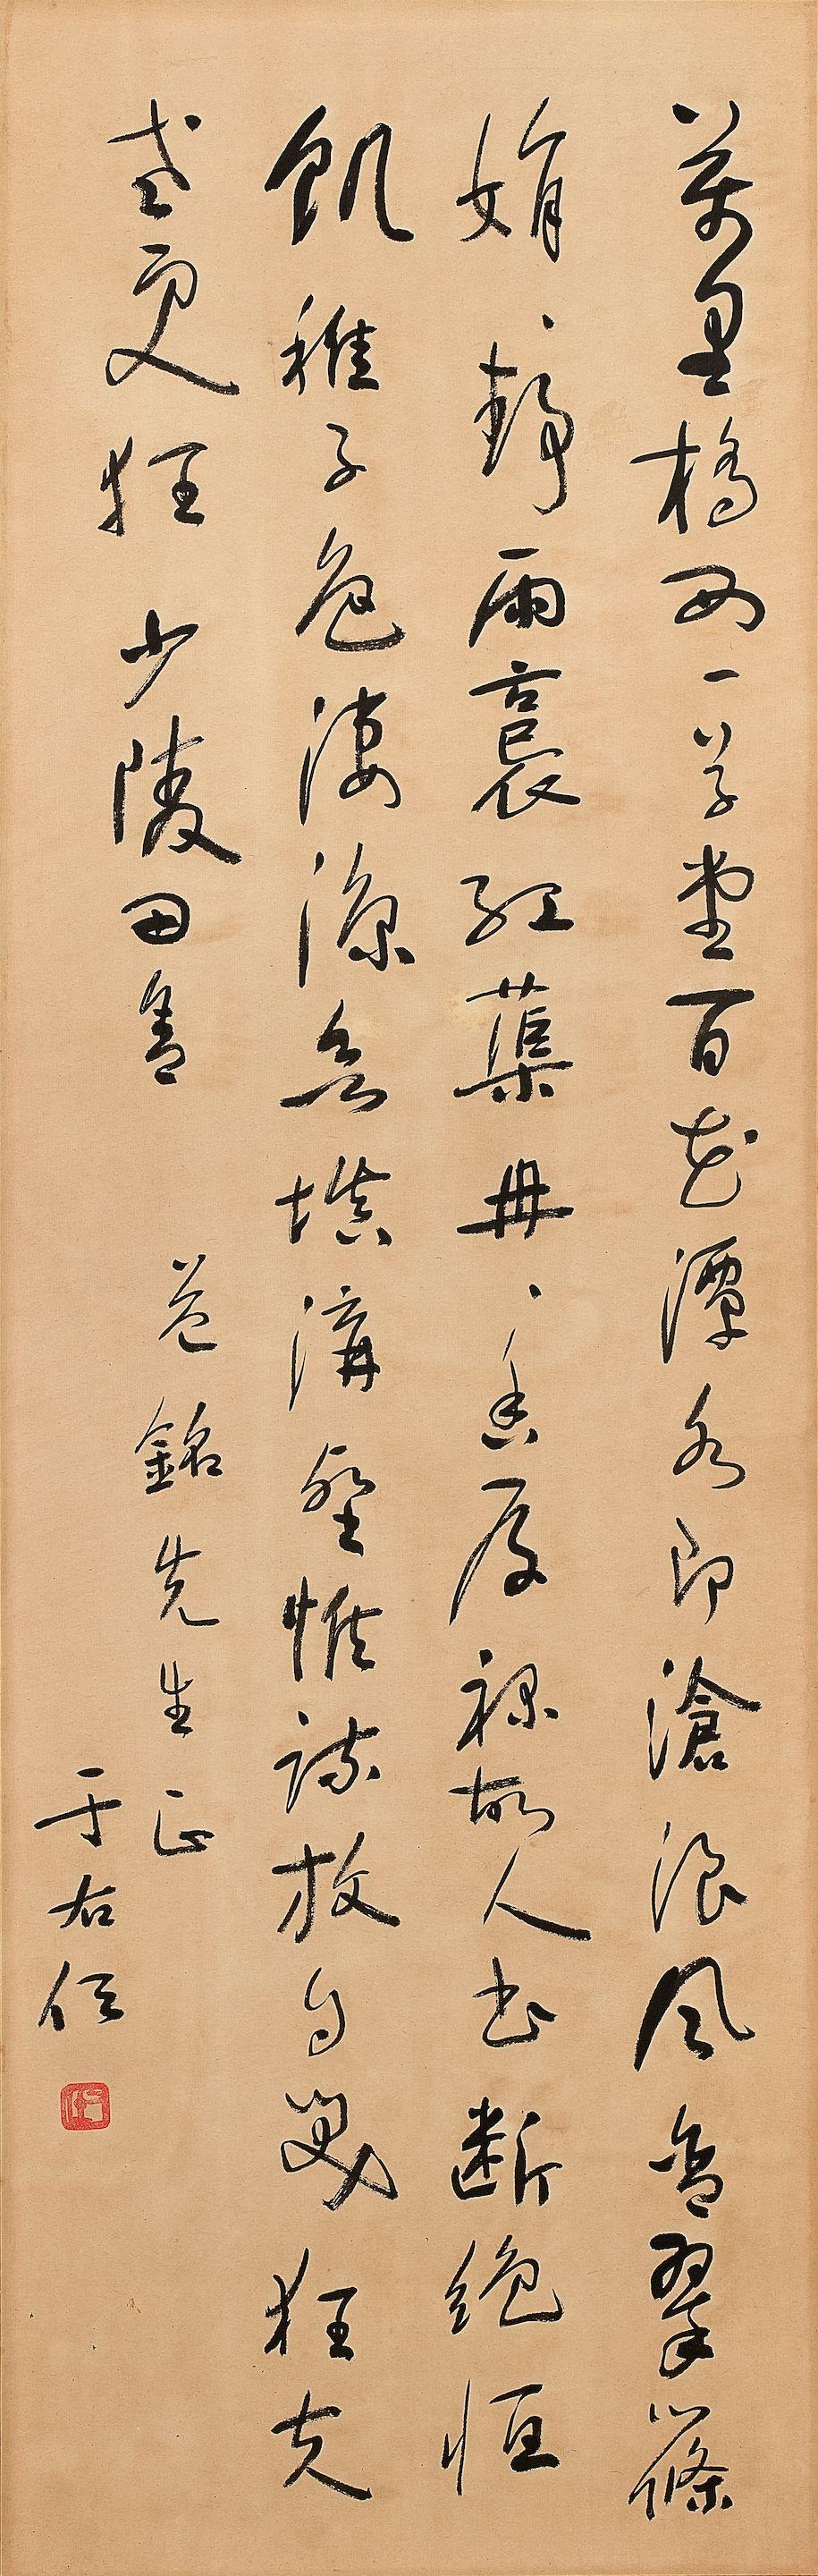 萬里橋西一草堂百花潭水即滄浪風含翠篠
娟、靜雨裛紅蕖冉、香厚祿故人書斷絕恆
飢稚子色淒涼欲填溝壑惟疏放自笑狂夫
老更狂 少陵田舍
益銘先生正
于右任